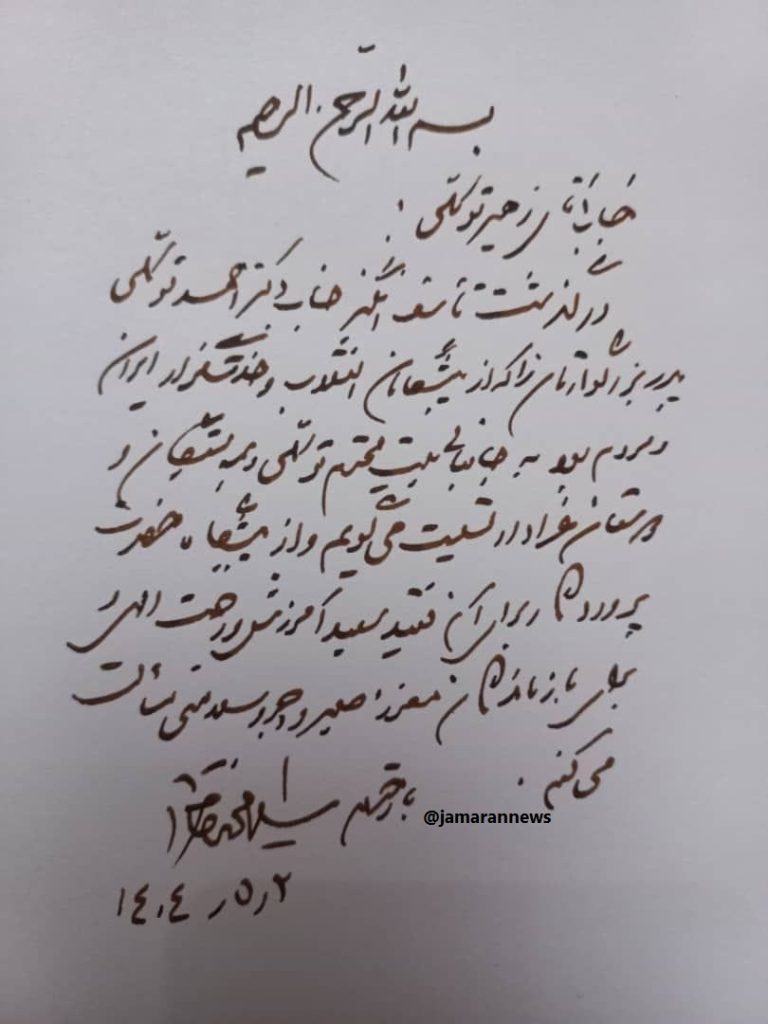 بسم الله الرحمن الرحیم
جناب آقای زهیر توکلی!
درگذشت تأسف انگیز جناب دکتر احمد توکلی
پدر بزرگوارتان را که از پیشگامان انقلاب و خدمتگزار ایران
و مردم بود به جنابعالی بیت محترم توکلی و همه بستگان و
دوستان عزادار تسلیت می گویم و از پیشگاه حضرت
پروردگار برای آن فقید سعید آمرزش و رحمت الهی و
برای بازماندگان معزز صبر و اجر و سلامتی مسألت
می کنم.
با احترام سید محمد خاتمی
@jamarannews
۱۴۰۴ر۵ر۲